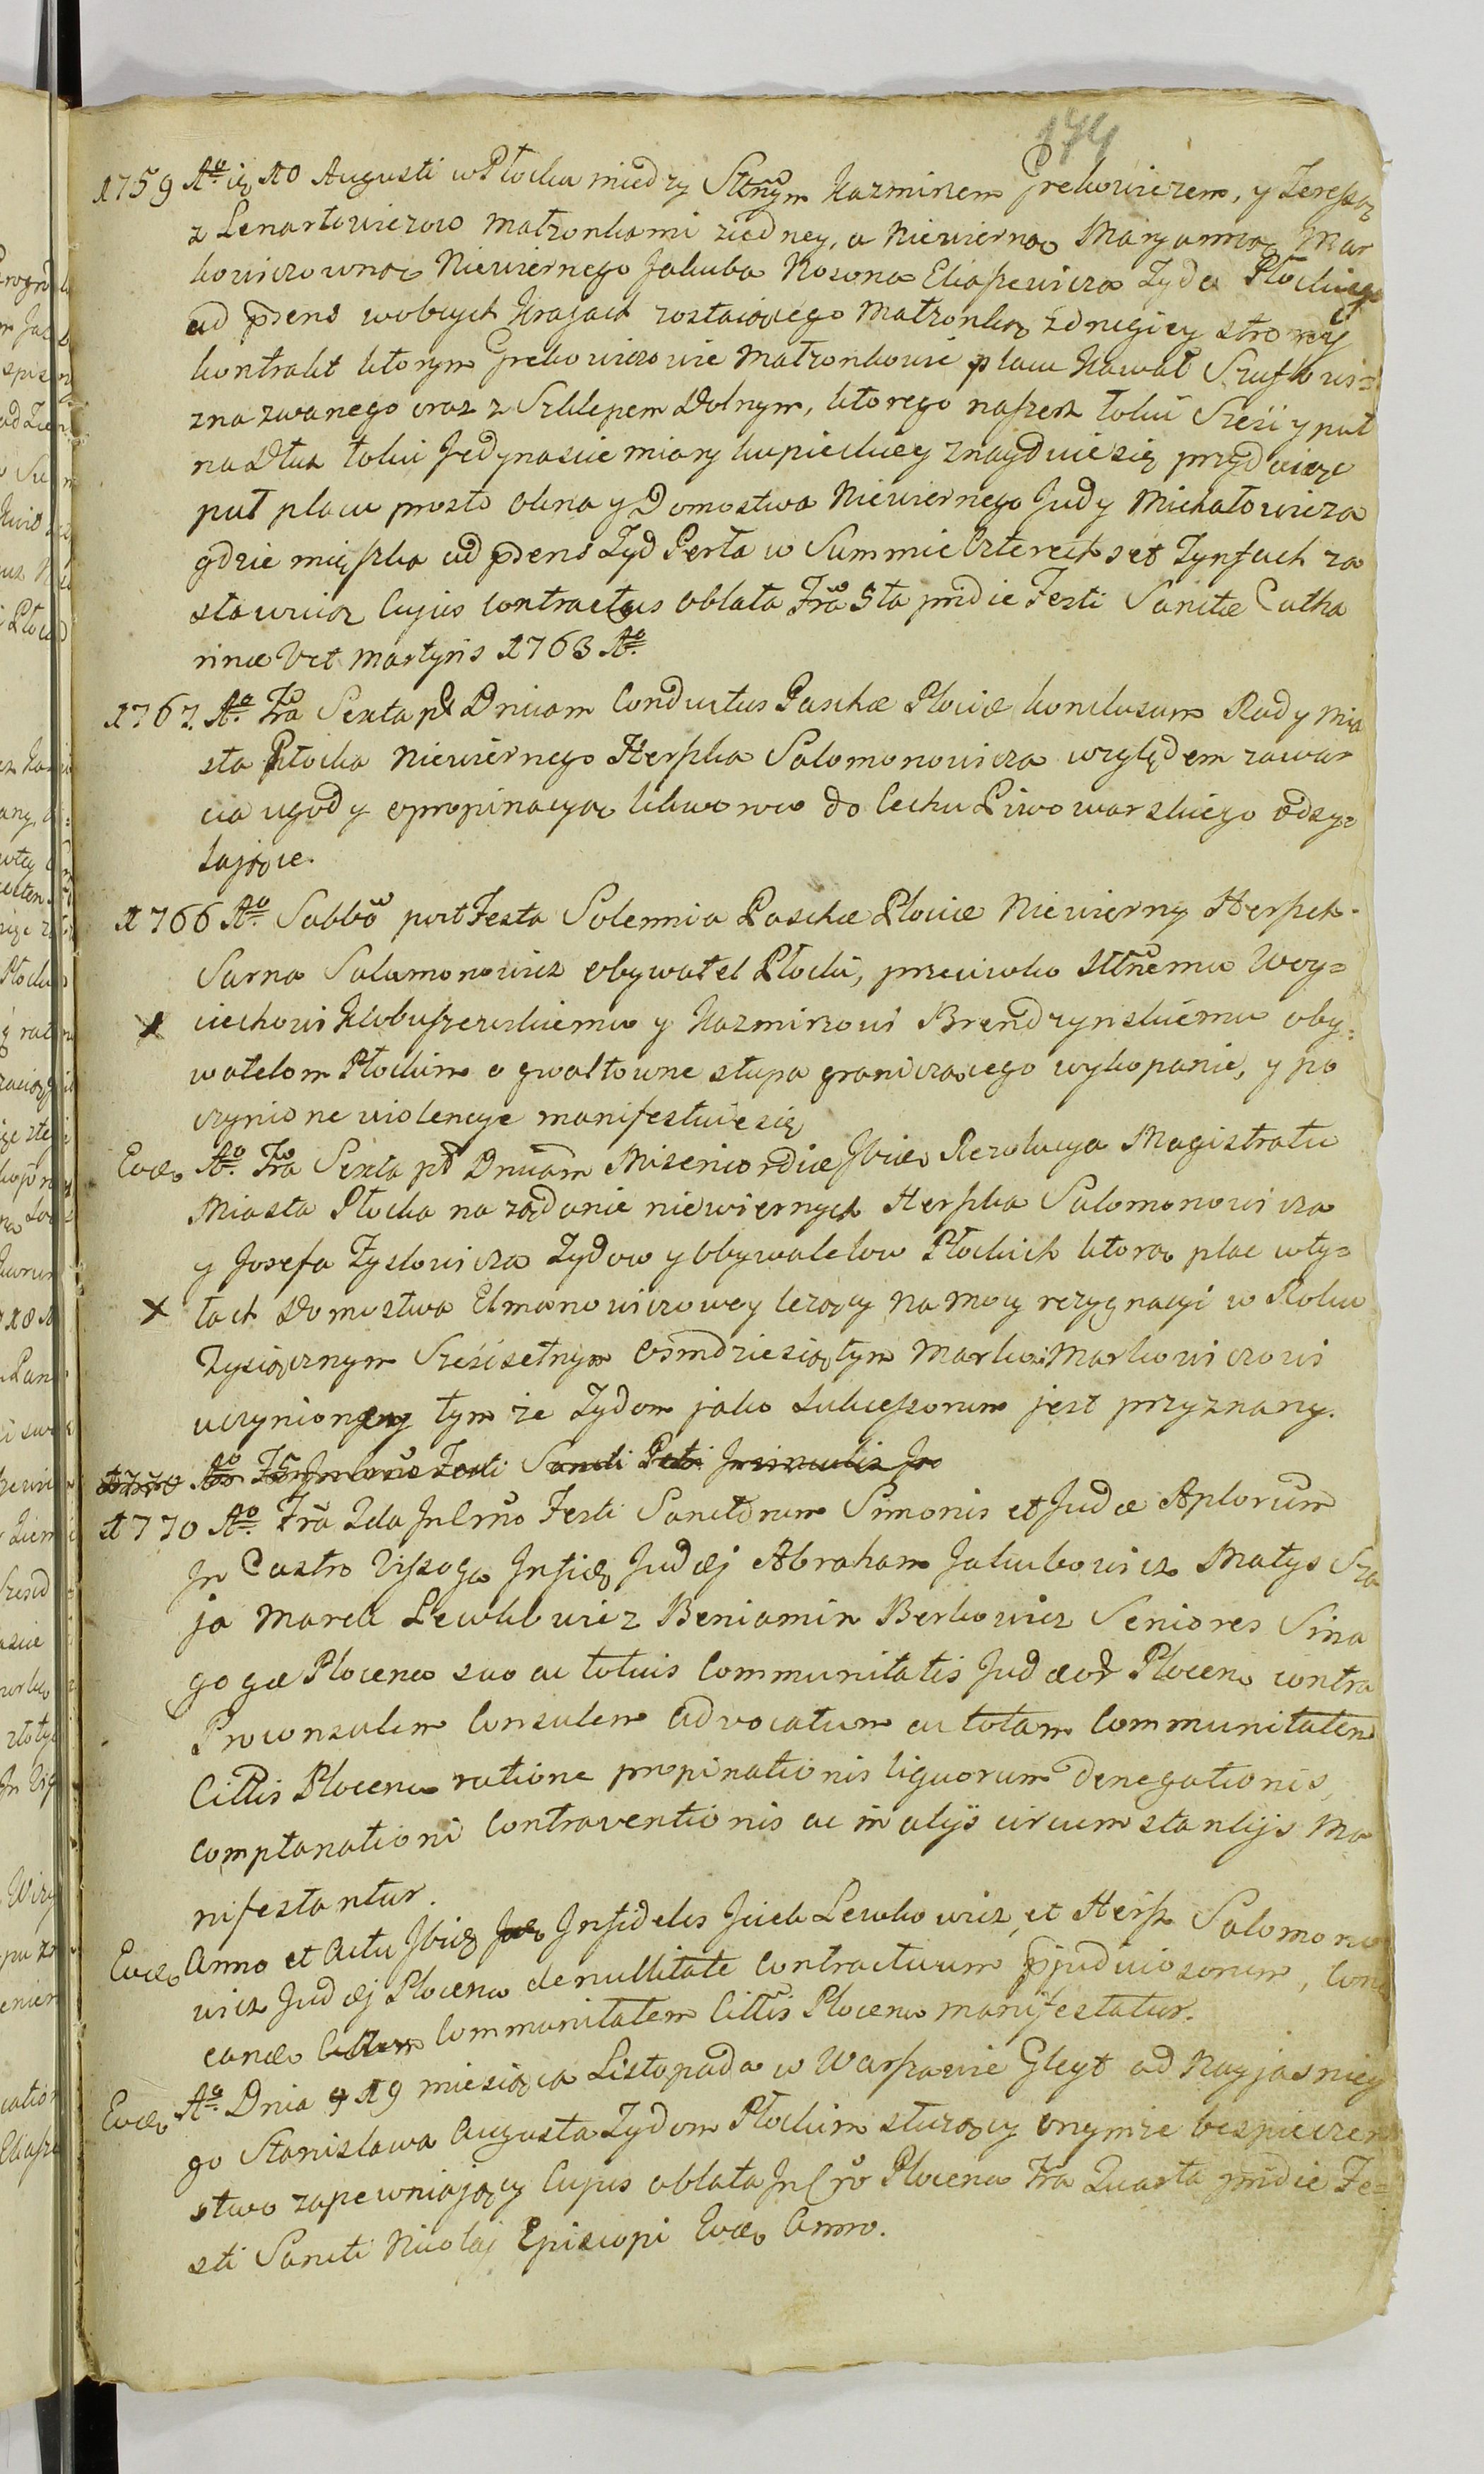 174
1759 Aō. ię 10 Augusti w Płocku miedzy Sttnym Kazmirzem Grekowiczem, y Teressą
z Lenartowiczow Matzonkami ziedney, a Niewierną Maryanną Mar
kowiczowną Niewiernego Jakuba Nosona Eliaszewicza Zyda Płockiego
ad prens wobcych Krajach zostaiącego Matzonką zdrugiey strony
kontrakt ktorym Grekowiczowie Matzonkowie placu Kawał Szufkowi=
zna zwanego oraz z Szklepem Dolnym, ktorego naszerz łokci Szesi y puł
na Dłuz łokci Jedynascie miary kupieckiey znayduie się przyd
puł placu prosto okna y Domostwa Niewiernego Judy Michałowicza
gdzie mięszka ad prens Zyd Perła w Summie Czterech set Tynfach za
stawuią Cujus contractus oblata Fra 5ta pridie Festi Sanctæ Catha
rinæ V et Martyris 1763 Aō.
1767. Aō. Fra Sexta pt Dnicam Conductus Paschæ Plociæ konclusum Rady Mia
sta Płocka Niewiernego Herszka Salomonowicza względem zawar
cia ugody o propinacyą likworow do Cechu Piwowarskiego odsy=
łające.
1766 Aō. Sabbō post Festa Solennia Paschæ Plociæ Niewierny Herszek
Sarna Salamonowicz obywatel Płocki, przeciwko Sttnemu Woy=
ciechowi Kłobuszewskiemu y Kazmirzowi Brendzynskiemu oby=
watelom Płockim o gwałtowne słupa graniczącego wykopanie, y po
czynione violencye manifestuie się
Eodō Aō. Fra Sexta pt Dnicam Misericordiæ Ibidō Rezolucya Magistratu
Miasta Płocka na żądanie niewiernych Herszka Salomonowicza
y Josefa Zyskowicza Zydow y Obywatelow Płockich ktorą plac wty=
łach Domostwa Elmanowiczowey leżący na mocy rezygnacyi w Roku
Tysiącznym Sześćsetnym Osmdziesiątym Marko: Markowiczowi
uczynioney tym że Zydom jako sukcessorum jest przyznany.
1770 Aō Fra In Crno Festi Sancti Petri In vinculis In
1770 Aō. Fra 2da In Crno Festi Sanctorum Simonis et Judæ Aplorum
In Castro Vissogo Infid. Judæj Abraham Jakubowicz Matys Sza
ja Marek Lewkowicz Beniamin Berkowicz Seniores Sina
gogæ Plocens suo ac totius Communitatis Judæor Plocens contra
Proconsulem Consulem Advocatum ac totam Communitatem
Cittis Plocens ratione propinationis liquorum denegationis,
complanationi Contraventionis ac in alijs circumstantijs Ma
nifestantur.
Eodō Anno et Actu Ibid. Infideles Jcek Lewkowicz, et Hersz Salomono
wicz Judæj Plocens de nullitate Contractuum pjudiciosorum, Con
eando Communitatem Cittis Plocens manifestatur.
Eodō Aō. Dnia 19 miesiąca Listopada w Warszawie Gleyt od Nayjasniey
go Stanisława Augusta Zydom Płockim służący onymże bespieczen
stwo zapewniający Cujus oblata In Cro Plocens Fra Quarta pridie Fe=
sti Sancti Nicolaj Episcopi Eodō Anno.